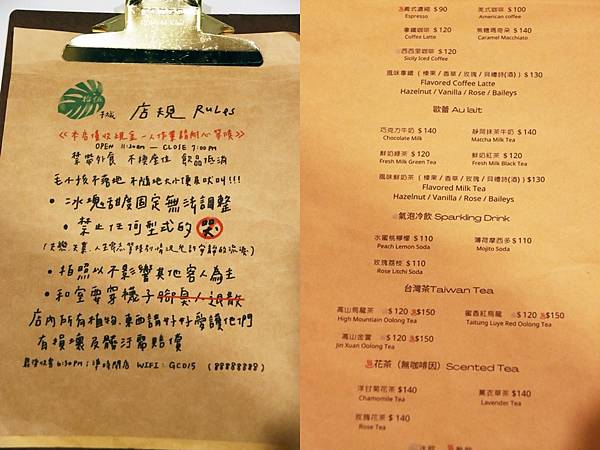 店規 RuLes
<<本店僅收現金 一人作業請耐心等候>>
OPEN 11:30AM — CLOSE 7:00PM
禁帶外食 不換座位 飲品低消
毛小孩不落地 不隨地大小便且吠叫!!!
• 冰塊甜度固定無法調整
• 禁止任何型式的哭
• 拍照以不影響其他客人為主
• 和室要穿襪子 腳臭人退散
店內所有植物、東西請好好愛護他們
有損壞及髒汙需賠償
最後收客6:30PM;準時閉店 WIFI: GC015 (88888888)
義式濃縮 $90 美式咖啡 $100
Espresso American coffee
拿鐵咖啡 $120 焦糖瑪奇朵 $140
Coffee Latte Caramel Macchiato
西西里咖啡 $120
Sicily Iced Coffee
風味拿鐵(榛果/香草/玫瑰/貝禮詩(酒))$130
Flavored Coffee Latte
Hazelnut / Vanilla / Rose / Baileys
歐蕾 Au lait
巧克力牛奶 $140 靜岡抹茶牛奶 $140
Chocolate Milk Matcha Milk Tea
鮮奶綠茶 $120 鮮奶紅茶 $120
Fresh Milk Green Tea Fresh Milk Black Tea
風味鮮奶茶(榛果/香草/玫瑰/貝禮詩(酒))$130
Flavored Milk Tea
Hazelnut / Vanilla / Rose / Baileys
氣泡冷飲 Sparkling Drink
水蜜桃檸檬 $110 薄荷摩西多 $110
Peach Lemon Soda Mojito Soda
玫瑰荔枝 $110
Rose Litchi Soda
台灣茶Taiwan Tea
高山烏龍茶 $120 $150 蜜香紅烏龍 $120 $150
High Mountiain Oolong Tea Taitung Luye Red Oolong Tea
高山金萱 $120 $150
Jin Xuan Oolong Tea
花茶(無咖啡因)Scented Tea
洋甘菊花茶 $140 薰衣草茶 $140
Chamomile Tea Lavender Tea
玫瑰花茶 $140
Rose Tea